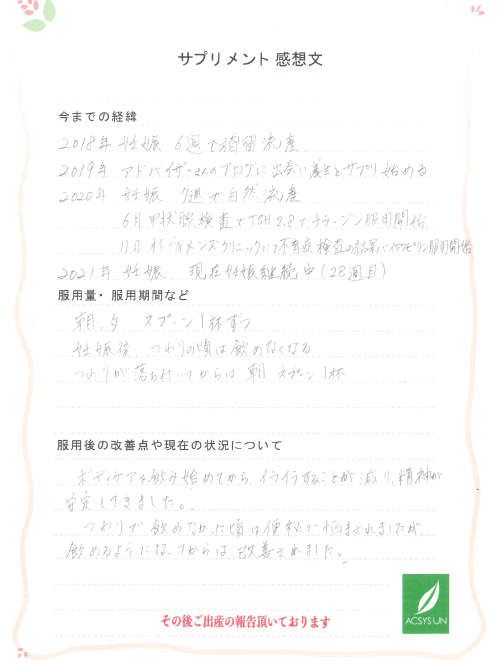 サプリメント 感想文
今までの経緯
2018年 妊娠 6週で稽留流産
2019年 アドバイザーさんのブログに出会い養生とサプリ始める
2020年 妊娠 7週で自然流産
6月 甲状腺検査でTSH 2.8でチラージン服用開始
11月 杉ウィメンズクリニックにて不育症検査の結果バイアスピリン服用開始
2021年 妊娠 現在妊娠継続中(28週目)
服用量・服用期間など
朝、夕 スプーン1杯ずつ
妊娠後、つわりの頃は飲めなくなる
つわりが落ち付いてからは 朝 スプーン1杯
服用後の改善点や現在の状況について
ボディケアを飲み始めてから、イライラすることが減り、精神が
安定してきました。
つわりで飲めなかった頃は便秘で悩まされましたが、
飲めるようになってからは改善されました。
その後ご出産の報告頂いております
ACSYSUN